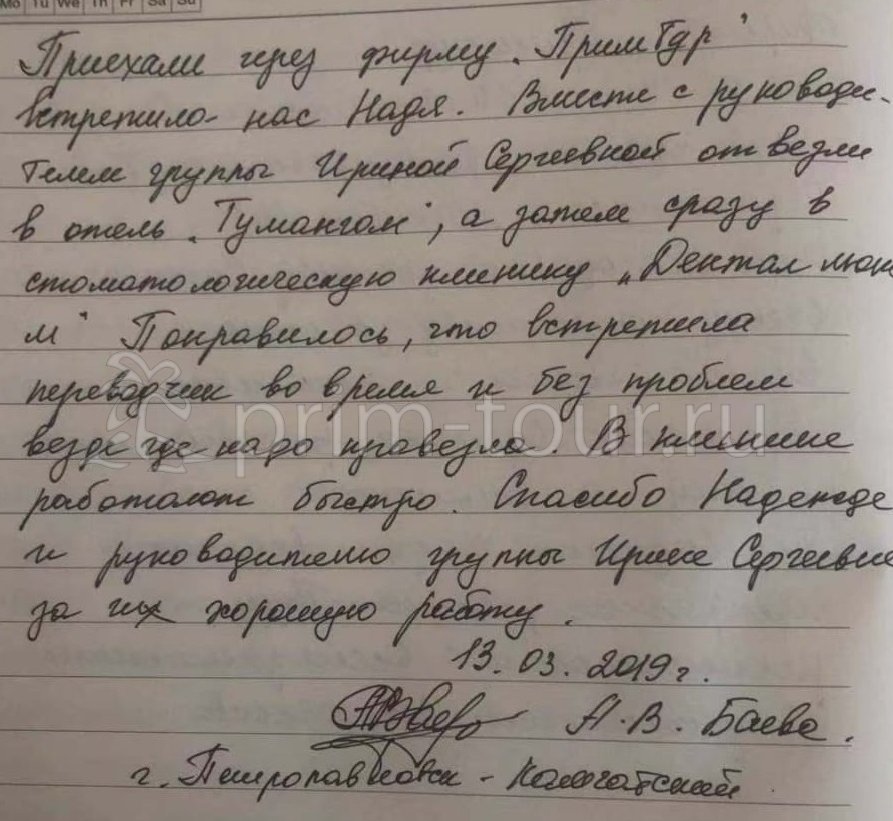 Mo Tu We Th Fr Sa Su
Приехали через фирму „ПримТур"
встретила нас Надя. Вместе с руководи-
телем группы Ириной Сергеевной отвезли
в отель „Тумангом", а затем сразу в
стоматологическую клинику „Дентал люк
м" Понравилось, что встретила
переводчик во время и без проблем
везде где надо провезла. В клинике
работают быстро. Спасибо Надежде
и руководителю группы Ирине Сергеевне
за их хорошую работу.
13.03.2019г.
А.В. Баева.
г. Петропавловск - Камчатский
prim-tour.ru